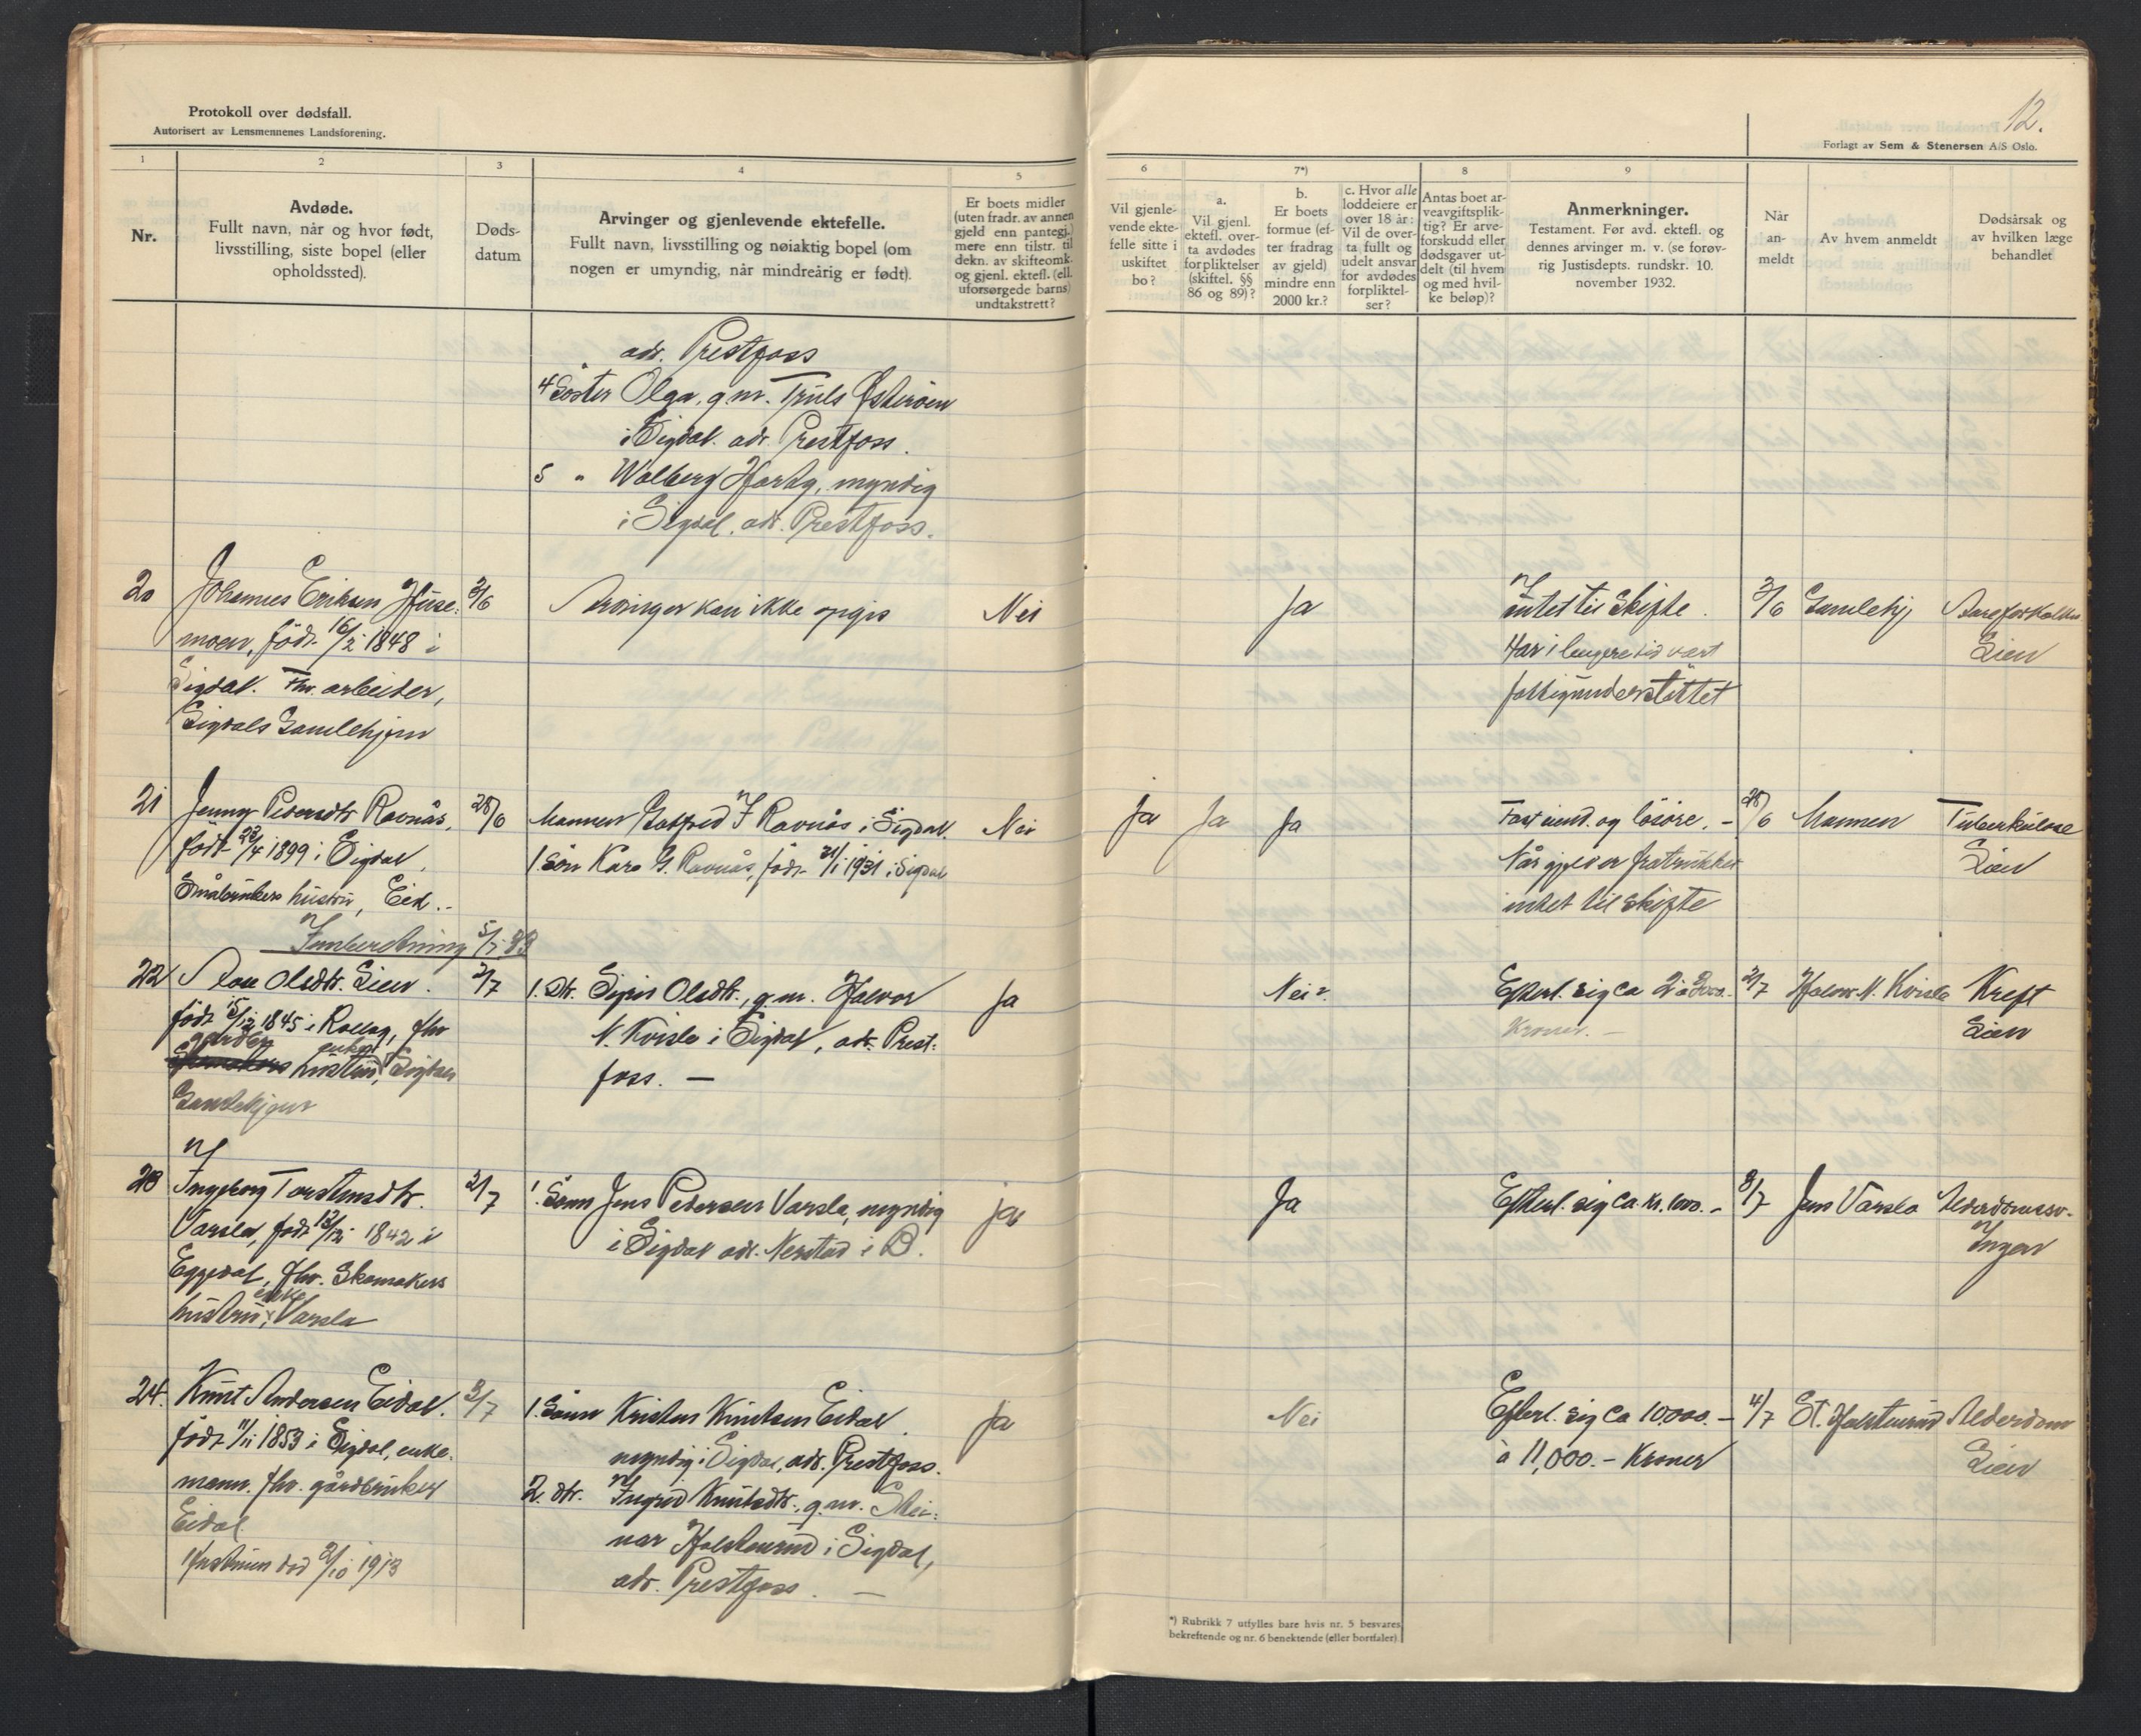 Protokoll over dødsfall.
Autorisert av Lensmennenes Landsforening.
12.
Forlagt av Sem & Stenersen A/S Oslo.
1
2
3
4
5
6
7*)
8
9
Nr.
Avdøde.
Fullt navn, når og hvor født,
livsstilling, siste bopel (eller
opholdssted).
Døds-
datum
Arvinger og gjenlevende ektefelle.
Fullt navn, livsstilling og nøiaktig bopel (om
nogen er umyndig, når mindreårig er født).
Er boets midler
(uten fradr. av annen
gjeld enn pantegj.)
mere enn tilstr. til
dekn. av skifteomk.
og gjenl. ektef. (ell.
uforsørgede barns)
undtakstrett?
Vil gjenle-
vende ekte-
felle sitte i
uskiftet
bo?
a.
Vil gjenl.
ektefl. over-
ta avdødes
forpliktelser
(skiftel. §§
86 og 89)?
b.
Er boets
formue (ef-
ter fradrag
av gjeld)
mindre enn
2000 kr.?
c. Hvor alle
loddeiere er
over 18 år:
Vil de over-
ta fullt og
udelt ansvar
for avdødes
forpliktel-
ser?
Antas boet ar-
veavgiftsplik-
tig? Er arve-
forskudd eller
dødsgaver ut-
delt (til hvem
og med hvil-
ke beløp)?
Anmerkninger.
Testament. Før avd. ektefl. og
dennes arvinger m. v. (se forøv-
rig Justisdepts. rundskr. 10.
november 1932.
Når
an-
meldt
Av hvem anmeldt
Dødsårsak og
av hvilken læge
behandlet
adr. Prestfoss
4 Søster Olga, g.m. Truls Østerøen
i Sigdal. adr. Prestfoss.
5 " Walberg Hartg, myndig
i Sigdal. adr. Prestfoss.
20 Johannes Eriksen Huse- 2/6 Arvinger kan ikke opgis Nei Ja Intet til skifte. 3/6 Gamlehj Åreforkalkn
moen, født 16/2 1848 i Har i lengere tid vært Lien
Sigdal. Fhv. arbeider, fattigunderstøttet
Sigdals Gamlehjem
21 Jenny Pedersdtr Ravnås, 28/6 Mannen Gotfred J Ravnås i Sigdal. Nei Ja Ja Ja Fast eiend. og løsøre. - 28/6 Mannen Tuberkulose
født 22/4 1899 i Sigdal, 1 Søn Kare G. Ravnås, født 21/1 1931 i Sigdal Når gjeld er fratrukket Lien
Småbrukers hustru, Eid.- intet til skifte
Innberetning 5/7 33
22 Aase Olsdtr. Lien. 2/7 1. Dtr. Sigrid Olsdtr., g.m. Halvor Ja Nei. Efterl. sig ca 2 à 3000.- 2/7 Halvor N. Kvisle Kreft
født 15/12 1845 i Rollag, fhv N. Kvisle i Sigdal, adr. Prest- Kroner.- Lien
gårdbr enke hustru, Sigdals foss. -
Gamlehjem
23 Ingeborg Torstensdtr. 2/7 1. Sønn Jens Pedersen Varsla, myndig ja Ja Efterl. sig ca. kr. 1000.- 3/7 Jens Varsla Alderdomssv.
Varsla, født 13/12 1842 i i Sigdal adr. Nerstad i S. Ingen
Eggedal, fhv. Skomakers
enke
hustru, Varsla
24. Knut Andersen Eidal. 3/7 1. Sønn Kristen Knutsen Eidal Ja Nei Efterl. sig ca 10,000.- 4/7 St. Holstenrud Alderdom
født 11/11 1853 i Sigdal, enke- myndig i Sigdal, adr. Prestfoss. à 11,000.- Kroner Lien
mann. fhv. gårdbruker 2. dtr. Ingrid Knutsdtr., g.m. Stei-
Eidal nar Holstenrud i Sigdal,
Hustruen død 2/10 1913 adr. Prestfoss. -
*) Rubrikk 7 utfylles bare hvis nr. 5 besvares
bekreftende og nr. 6 benektende (eller bortfaler)